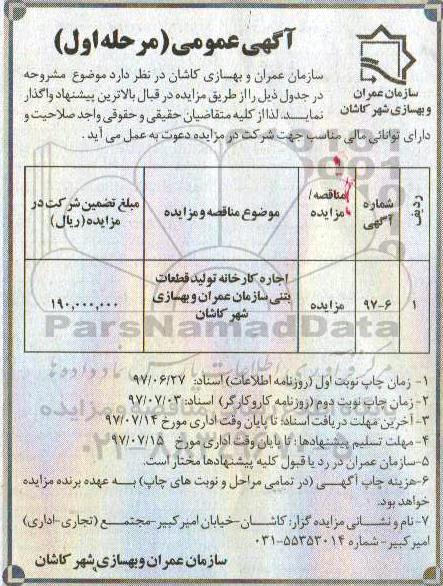 آگهی عمومی (مرحله اول)
سازمان عمران
و بهسازی شهر کاشان
سازمان عمران و بهسازی کاشان در نظر دارد موضوع مشروحه
در جدول ذیل را از طریق مزایده در قبال بالاترین پیشنهاد واگذار
نمایند. لذا از کلیه متقاضیان حقیقی و حقوقی واجد صلاحیت و
دارای توانائی مالی مناسب جهت شرکت در مزایده دعوت به عمل می آید.
ردیف
شماره آگهی
مناقصه/ مزایده
موضوع مناقصه و مزایده
مبلغ تضمین شرکت در مزایده (ریال)
۱
۹۷-۶
مزایده
اجاره کارخانه تولید قطعات
بتنی سازمان عمران و بهسازی
شهر کاشان
۱۹۰,۰۰۰,۰۰۰
ParsNamadData
۱- زمان چاپ نوبت اول (روزنامه اطلاعات) اسناد: ۹۷/۰۶/۲۷
۲- زمان چاپ نوبت دوم (روزنامه کار و کارگر) اسناد: ۹۷/۰۷/۰۳
۳- آخرین مهلت دریافت اسناد: تا پایان وقت اداری مورخ ۹۷/۰۷/۱۴
۴- مهلت تسلیم پیشنهادها: تا پایان وقت اداری مورخ ۹۷/۰۷/۱۵
۵- سازمان عمران در رد یا قبول کلیه پیشنهادها مختار است.
۶- هزینه چاپ آگهی (در تمامی مراحل و نوبت های چاپ) به عهده برنده مزایده
خواهد بود.
۷- نام و نشانی مزایده گزار: کاشان-خیابان امیرکبیر-مجتمع (تجاری-اداری)
امیرکبیر-شماره ۵۵۳۵۳۰۱۴-۰۳۱
سازمان عمران و بهسازی شهر کاشان